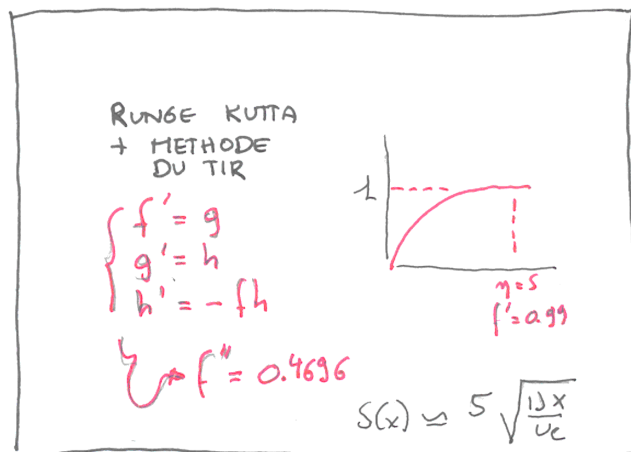 RUNGE KUTTA
+ METHODE
DU TIR
f' = g
g' = h
h' = - fh
f'' = 0.4696
1
η = 5
f' = 0.99
δ(x) ≃ 5 √(νx/Ue)